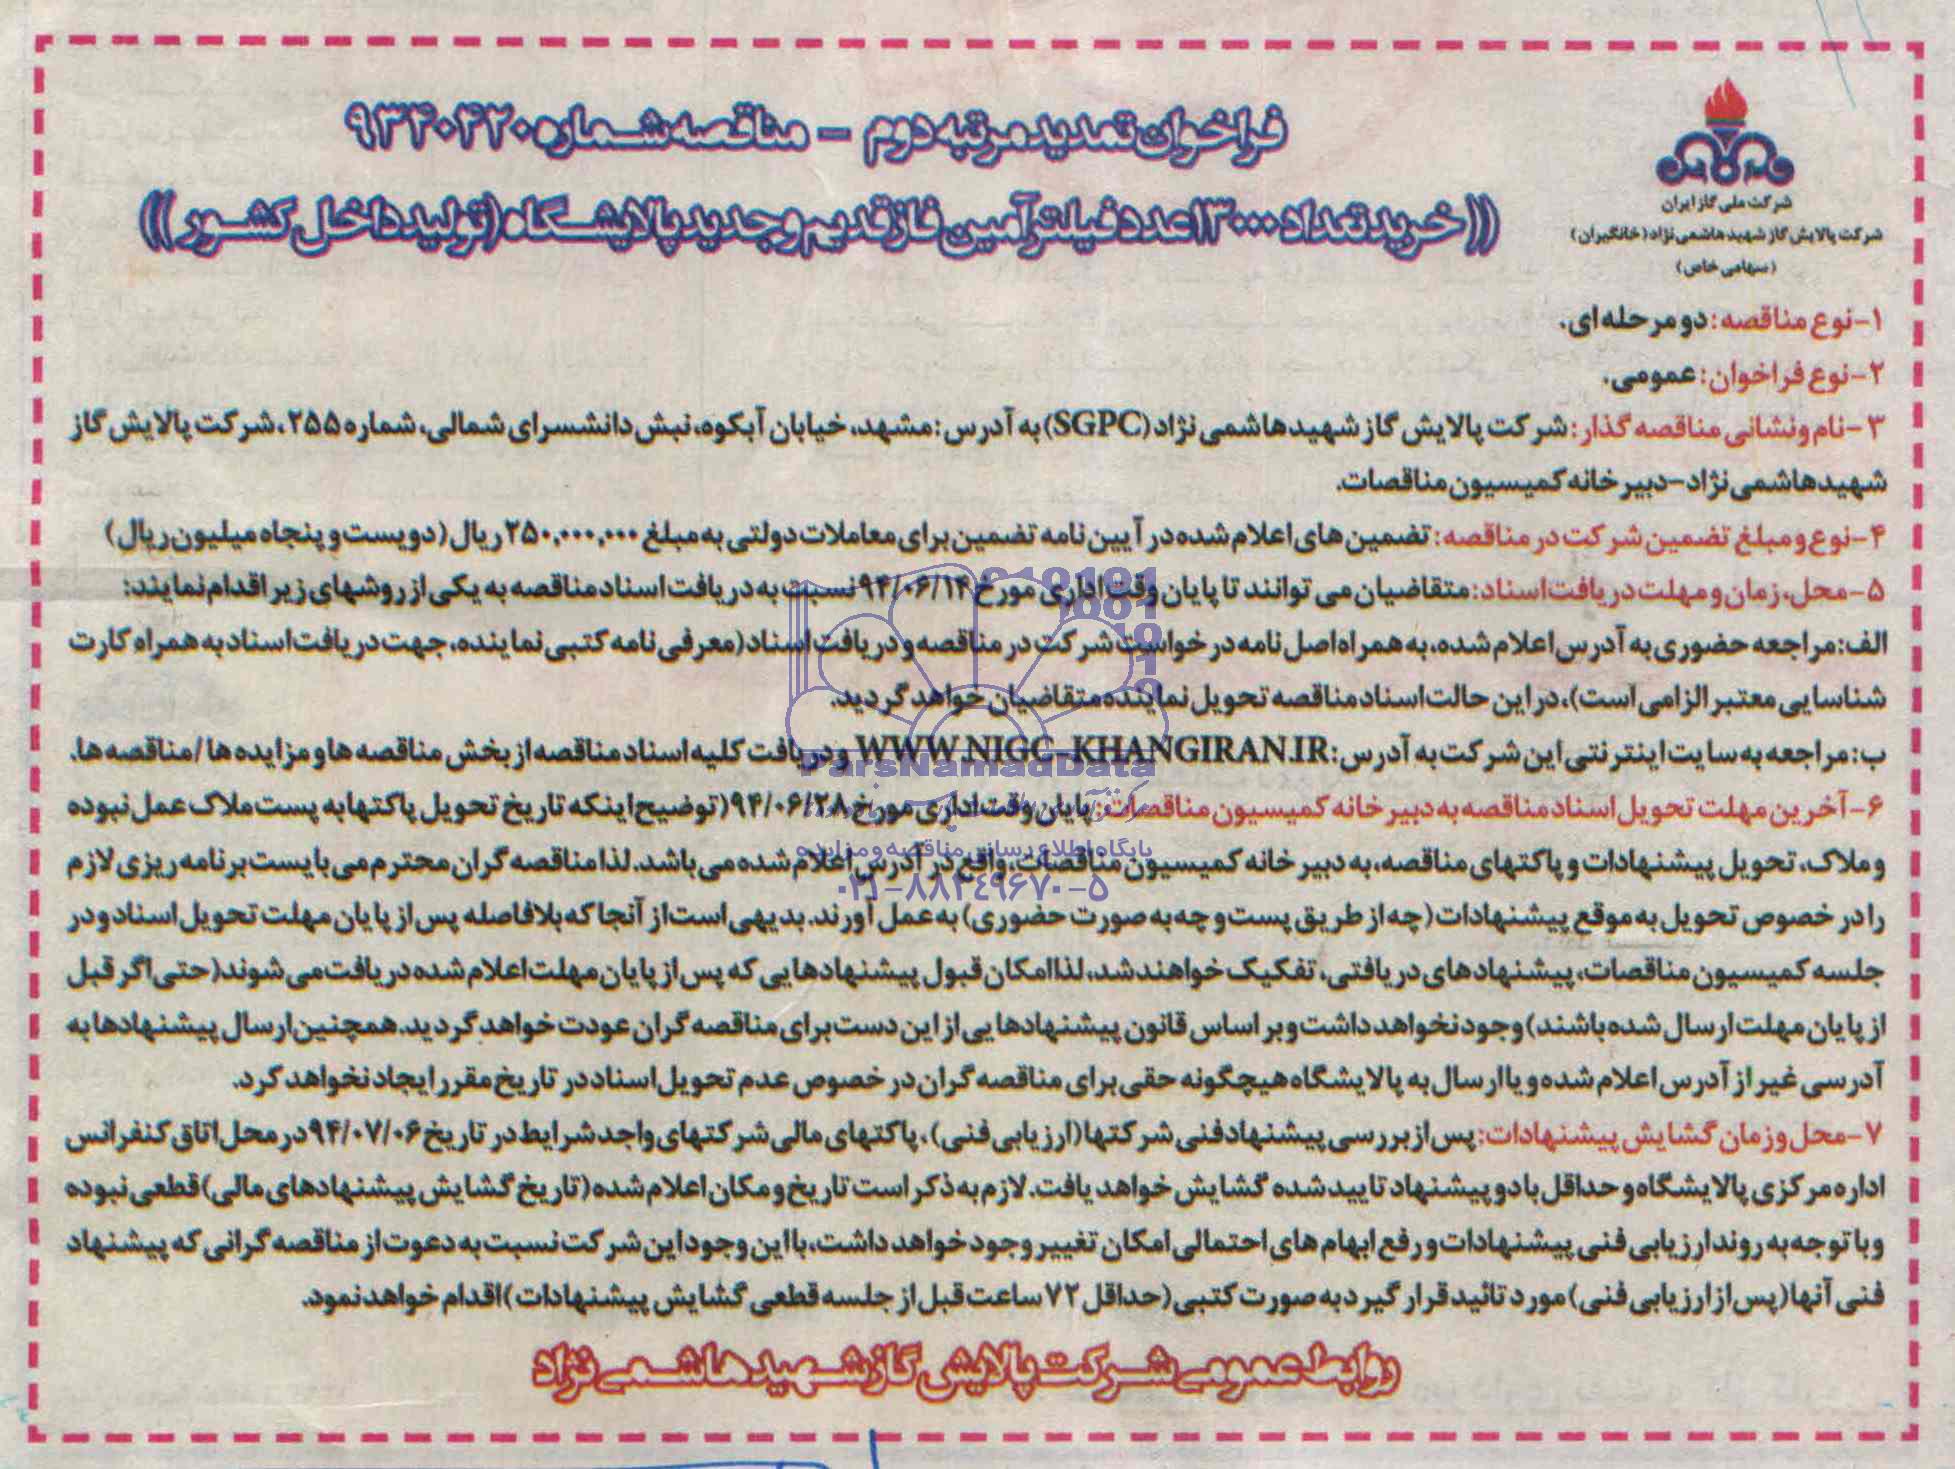 فراخوان تمدید مرتبه دوم - مناقصه شماره ۹۳۴۰۴۲۰
((خرید تعداد ۱۳۰۰۰ عدد فیلتر آمین فاز قدیم و جدید پالایشگاه (تولید داخل کشور))
شرکت ملی گاز ایران
شرکت پالایش گاز شهید هاشمی نژاد (خانگیران)
(سهامی خاص)
۱- نوع مناقصه: دو مرحله ای.
۲- نوع فراخوان: عمومی.
۳- نام و نشانی مناقصه گذار: شرکت پالایش گاز شهید هاشمی نژاد (SGPC) به آدرس: مشهد، خیابان آبکوه، نبش دانشسرای شمالی، شماره ۲۵۵، شرکت پالایش گاز
شهید هاشمی نژاد - دبیرخانه کمیسیون مناقصات.
۴- نوع و مبلغ تضمین شرکت در مناقصه: تضمین های اعلام شده در آیین نامه تضمین برای معاملات دولتی به مبلغ ۲۵۰,۰۰۰,۰۰۰ ریال (دویست و پنجاه میلیون ریال)
۵- محل، زمان و مهلت دریافت اسناد: متقاضیان می توانند تا پایان وقت اداری مورخ ۹۴/۰۶/۱۴ نسبت به دریافت اسناد مناقصه به یکی از روشهای زیر اقدام نمایند:
الف: مراجعه حضوری به آدرس اعلام شده، به همراه اصل نامه درخواست شرکت در مناقصه و دریافت اسناد (معرفی نامه کتبی نماینده، جهت دریافت اسناد به همراه کارت
شناسایی معتبر الزامی است)، در این حالت اسناد مناقصه تحویل نماینده متقاضیان خواهد گردید.
ب: مراجعه به سایت اینترنتی این شرکت به آدرس: WWW.NIGC-KHANGIRAN.IR و دریافت کلیه اسناد مناقصه از بخش مناقصه ها و مزایده ها / مناقصه ها.
۶- آخرین مهلت تحویل اسناد مناقصه به دبیرخانه کمیسیون مناقصات: پایان وقت اداری مورخ ۹۴/۰۶/۲۸ (توضیح اینکه تاریخ تحویل پاکتها به پست ملاک عمل نبوده
و ملاک، تحویل پیشنهادات و پاکتهای مناقصه، به دبیرخانه کمیسیون مناقصات، واقع در آدرس اعلام شده می باشد. لذا مناقصه گران محترم می بایست برنامه ریزی لازم
را در خصوص تحویل به موقع پیشنهادات (چه از طریق پست و چه به صورت حضوری) به عمل آورند. بدیهی است از آنجا که بلافاصله پس از پایان مهلت تحویل اسناد و در
جلسه کمیسیون مناقصات، پیشنهادهای دریافتی، تفکیک خواهند شد، لذا امکان قبول پیشنهادهایی که پس از پایان مهلت اعلام شده دریافت می شوند (حتی اگر قبل
از پایان مهلت ارسال شده باشند) وجود نخواهد داشت و بر اساس قانون پیشنهادهایی از این دست برای مناقصه گران عودت خواهد گردید. همچنین ارسال پیشنهادها به
آدرسی غیر از آدرس اعلام شده و یا ارسال به پالایشگاه هیچگونه حقی برای مناقصه گران در خصوص عدم تحویل اسناد در تاریخ مقرر ایجاد نخواهد کرد.
۷- محل و زمان گشایش پیشنهادات: پس از بررسی پیشنهاد فنی شرکتها (ارزیابی فنی)، پاکتهای مالی شرکتهای واجد شرایط در تاریخ ۹۴/۰۷/۰۶ در محل اتاق کنفرانس
اداره مرکزی پالایشگاه و حداقل با دو پیشنهاد تایید شده گشایش خواهد یافت. لازم به ذکر است تاریخ و مکان اعلام شده (تاریخ گشایش پیشنهادهای مالی) قطعی نبوده
و با توجه به روند ارزیابی فنی پیشنهادات و رفع ابهام های احتمالی امکان تغییر وجود خواهد داشت، با این وجود این شرکت نسبت به دعوت از مناقصه گرانی که پیشنهاد
فنی آنها (پس از ارزیابی فنی) مورد تائید قرار گیرد به صورت کتبی (حداقل ۷۲ ساعت قبل از جلسه قطعی گشایش پیشنهادات) اقدام خواهد نمود.
روابط عمومی شرکت پالایش گاز شهید هاشمی نژاد
ParsNamadData
پایگاه اطلاع رسانی مناقصه و مزایده
۰۲۱-۸۸۳۴۹۶۷۰-۵